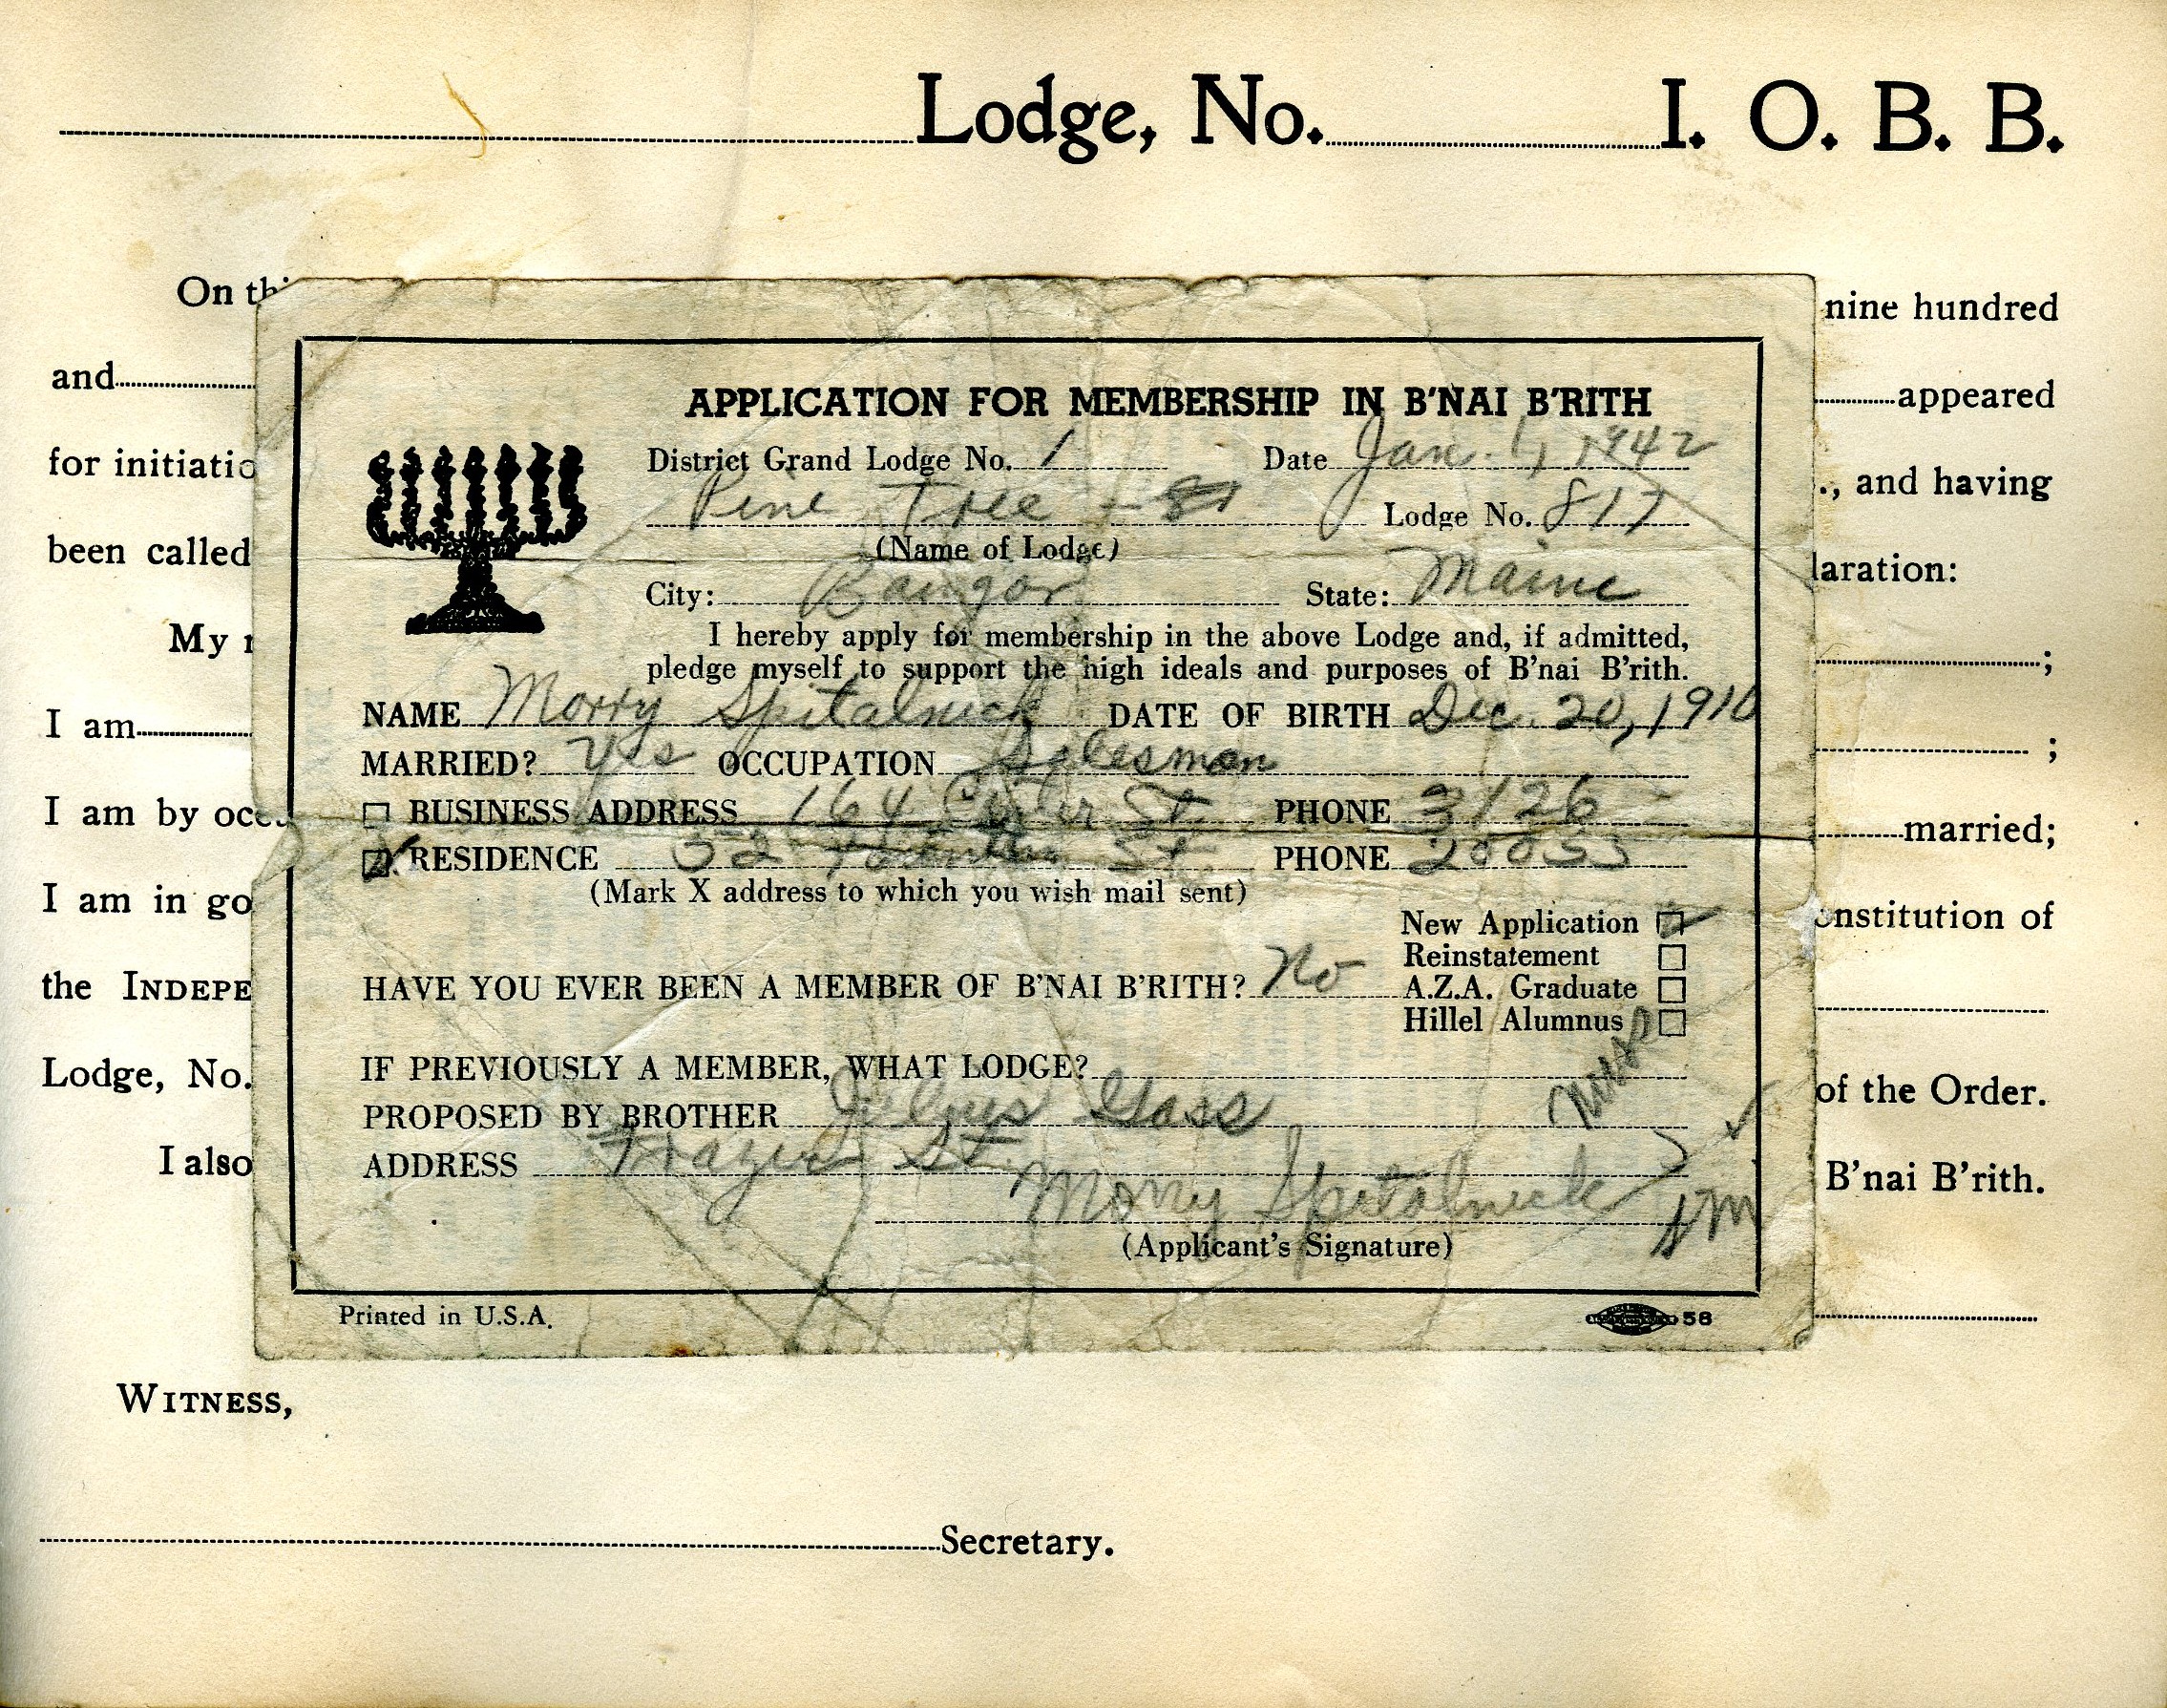 Lodge, No. I. O. B. B.
On thi
nine hundred
and
appeared
for initiatio
., and having
been called
laration:
My
;
I am
;
I am by occ
married;
I am in go
onstitution of
the INDEPE
Lodge, No.
of the Order.
I also
B'nai B'rith.
APPLICATION FOR MEMBERSHIP IN B'NAI B'RITH
District Grand Lodge No. 1 Date Jan. 1, 1942
Pine Tree Lodge No. 817
(Name of Lodge)
City: Bangor State: Maine
I hereby apply for membership in the above Lodge and, if admitted,
pledge myself to support the high ideals and purposes of B'nai B'rith.
NAME Morry Spitalnick DATE OF BIRTH Dec. 20, 1910
MARRIED? Yes OCCUPATION Salesman
BUSINESS ADDRESS 164 Center St. PHONE 3126
RESIDENCE 52 St. PHONE 20053
(Mark X address to which you wish mail sent)
New Application
Reinstatement
HAVE YOU EVER BEEN A MEMBER OF B'NAI B'RITH? No A.Z.A. Graduate
Hillel Alumnus
IF PREVIOUSLY A MEMBER, WHAT LODGE?
PROPOSED BY BROTHER Julius Gass
ADDRESS Frazier St.
Morry Spitalnick
(Applicant's Signature)
Printed in U.S.A. 58
WITNESS,
Secretary.